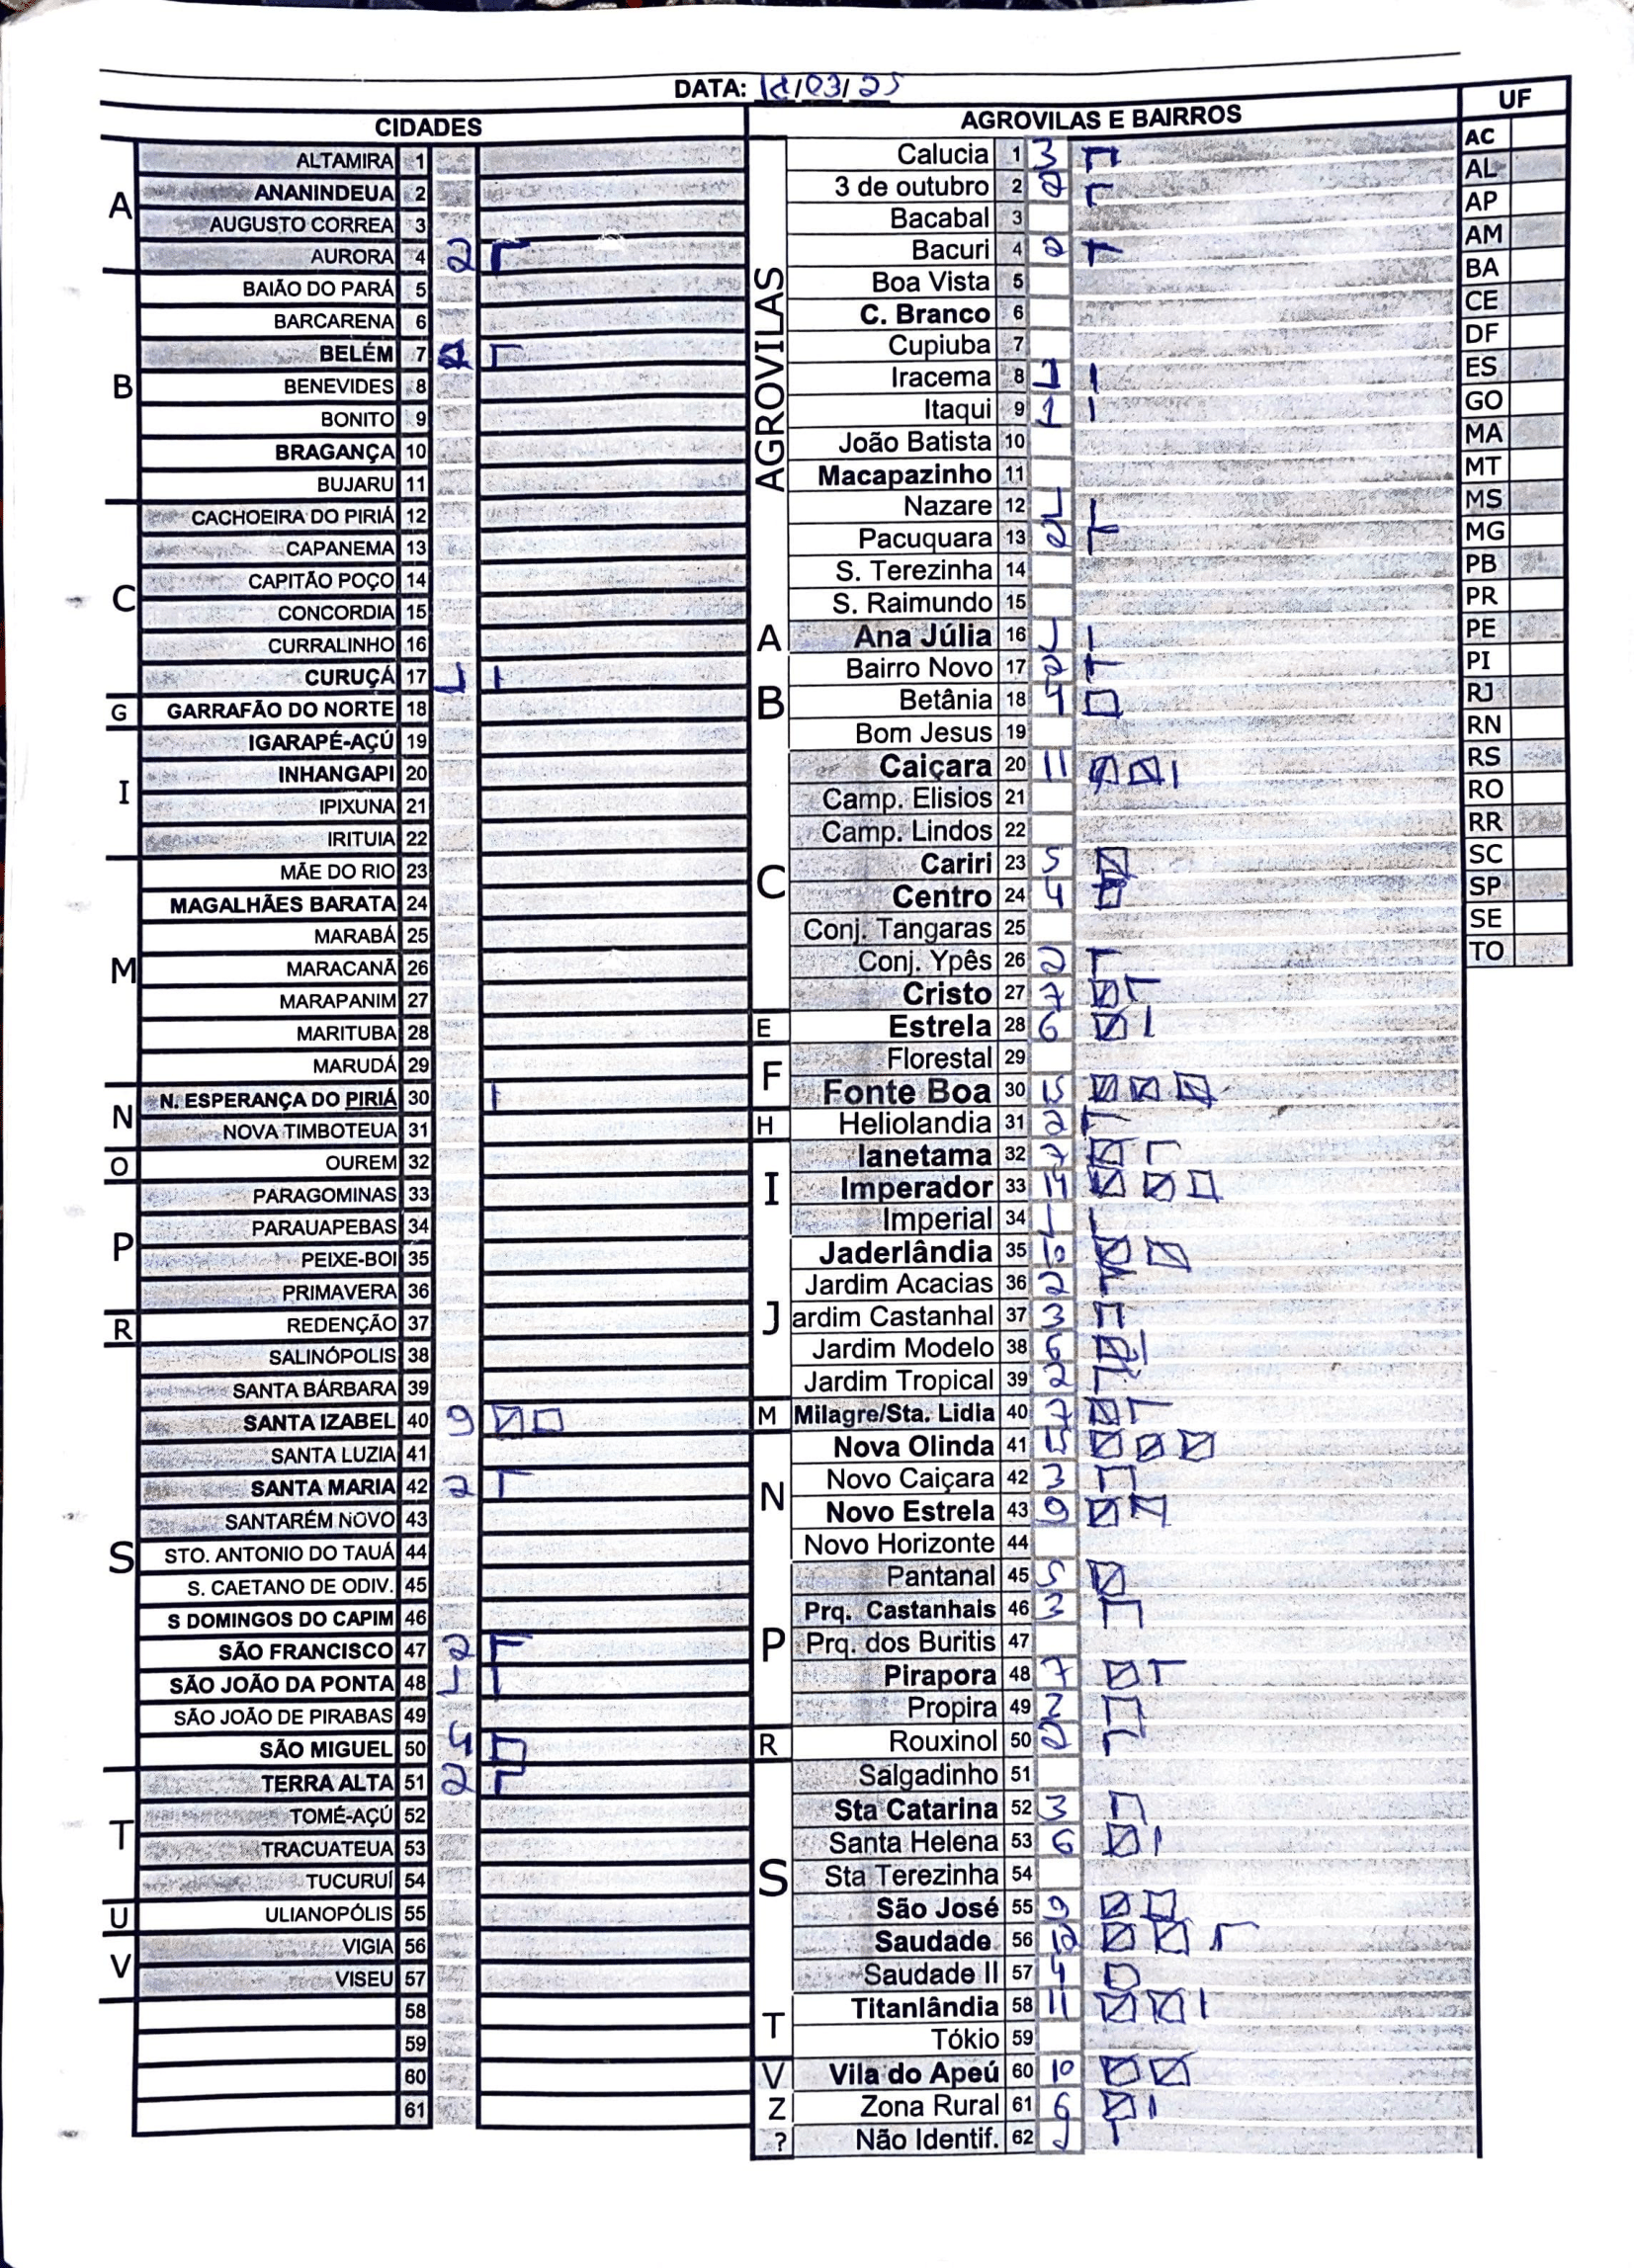 DATA: 12/03/25
CIDADES
A
ALTAMIRA 1
ANANINDEUA 2
AUGUSTO CORREA 3
AURORA 4 2
B
BAIÃO DO PARÁ 5
BARCARENA 6
BELÉM 7 2
BENEVIDES 8
BONITO 9
BRAGANÇA 10
BUJARU 11
C
CACHOEIRA DO PIRIÁ 12
CAPANEMA 13
CAPITÃO POÇO 14
CONCORDIA 15
CURRALINHO 16
CURUÇÁ 17 1
G
GARRAFÃO DO NORTE 18
I
IGARAPÉ-AÇÚ 19
INHANGAPI 20
IPIXUNA 21
IRITUIA 22
M
MÃE DO RIO 23
MAGALHÃES BARATA 24
MARABÁ 25
MARACANÃ 26
MARAPANIM 27
MARITUBA 28
MARUDÁ 29
N
N. ESPERANÇA DO PIRIÁ 30
NOVA TIMBOTEUA 31
O
OUREM 32
P
PARAGOMINAS 33
PARAUAPEBAS 34
PEIXE-BOI 35
PRIMAVERA 36
R
REDENÇÃO 37
S
SALINÓPOLIS 38
SANTA BÁRBARA 39
SANTA IZABEL 40 9
SANTA LUZIA 41
SANTA MARIA 42 2
SANTARÉM NOVO 43
STO. ANTONIO DO TAUÁ 44
S. CAETANO DE ODIV. 45
S DOMINGOS DO CAPIM 46
SÃO FRANCISCO 47 2
SÃO JOÃO DA PONTA 48 1
SÃO JOÃO DE PIRABAS 49
SÃO MIGUEL 50 4
T
TERRA ALTA 51 2
TOMÉ-AÇÚ 52
TRACUATEUA 53
TUCURUÍ 54
U
ULIANOPÓLIS 55
V
VIGIA 56
VISEU 57
58
59
60
61
AGROVILAS E BAIRROS
AGROVILAS
Calucia 1 3
3 de outubro 2 2
Bacabal 3
Bacuri 4 2
Boa Vista 5
C. Branco 6
Cupiuba 7
Iracema 8 1
Itaqui 9 1
João Batista 10
Macapazinho 11
Nazare 12 1
Pacuquara 13 2
S. Terezinha 14
S. Raimundo 15
A
Ana Júlia 16 1
B
Bairro Novo 17 2
Betânia 18 4
Bom Jesus 19
C
Caiçara 20 11
Camp. Elisios 21
Camp. Lindos 22
Cariri 23 5
Centro 24 4
Conj. Tangaras 25
Conj. Ypês 26 2
Cristo 27 7
E
Estrela 28 6
F
Florestal 29
Fonte Boa 30 15
H
Heliolandia 31 2
I
Ianetama 32 7
Imperador 33 14
Imperial 34 1
J
Jaderlândia 35 10
Jardim Acacias 36 2
ardim Castanhal 37 3
Jardim Modelo 38 6
Jardim Tropical 39 2
M
Milagre/Sta. Lidia 40 7
N
Nova Olinda 41 15
Novo Caiçara 42 3
Novo Estrela 43 9
Novo Horizonte 44
P
Pantanal 45 5
Prq. Castanhais 46 3
Prq. dos Buritis 47
Pirapora 48 7
Propira 49 3
R
Rouxinol 50 2
S
Salgadinho 51
Sta Catarina 52 3
Santa Helena 53 6
Sta Terezinha 54
São José 55 9
Saudade 56 12
Saudade II 57 4
T
Titanlândia 58 11
Tókio 59
V
Vila do Apeú 60 10
Z
Zona Rural 61 6
?
Não Identif. 62
UF
AC
AL
AP
AM
BA
CE
DF
ES
GO
MA
MT
MS
MG
PB
PR
PE
PI
RJ
RN
RS
RO
RR
SC
SP
SE
TO